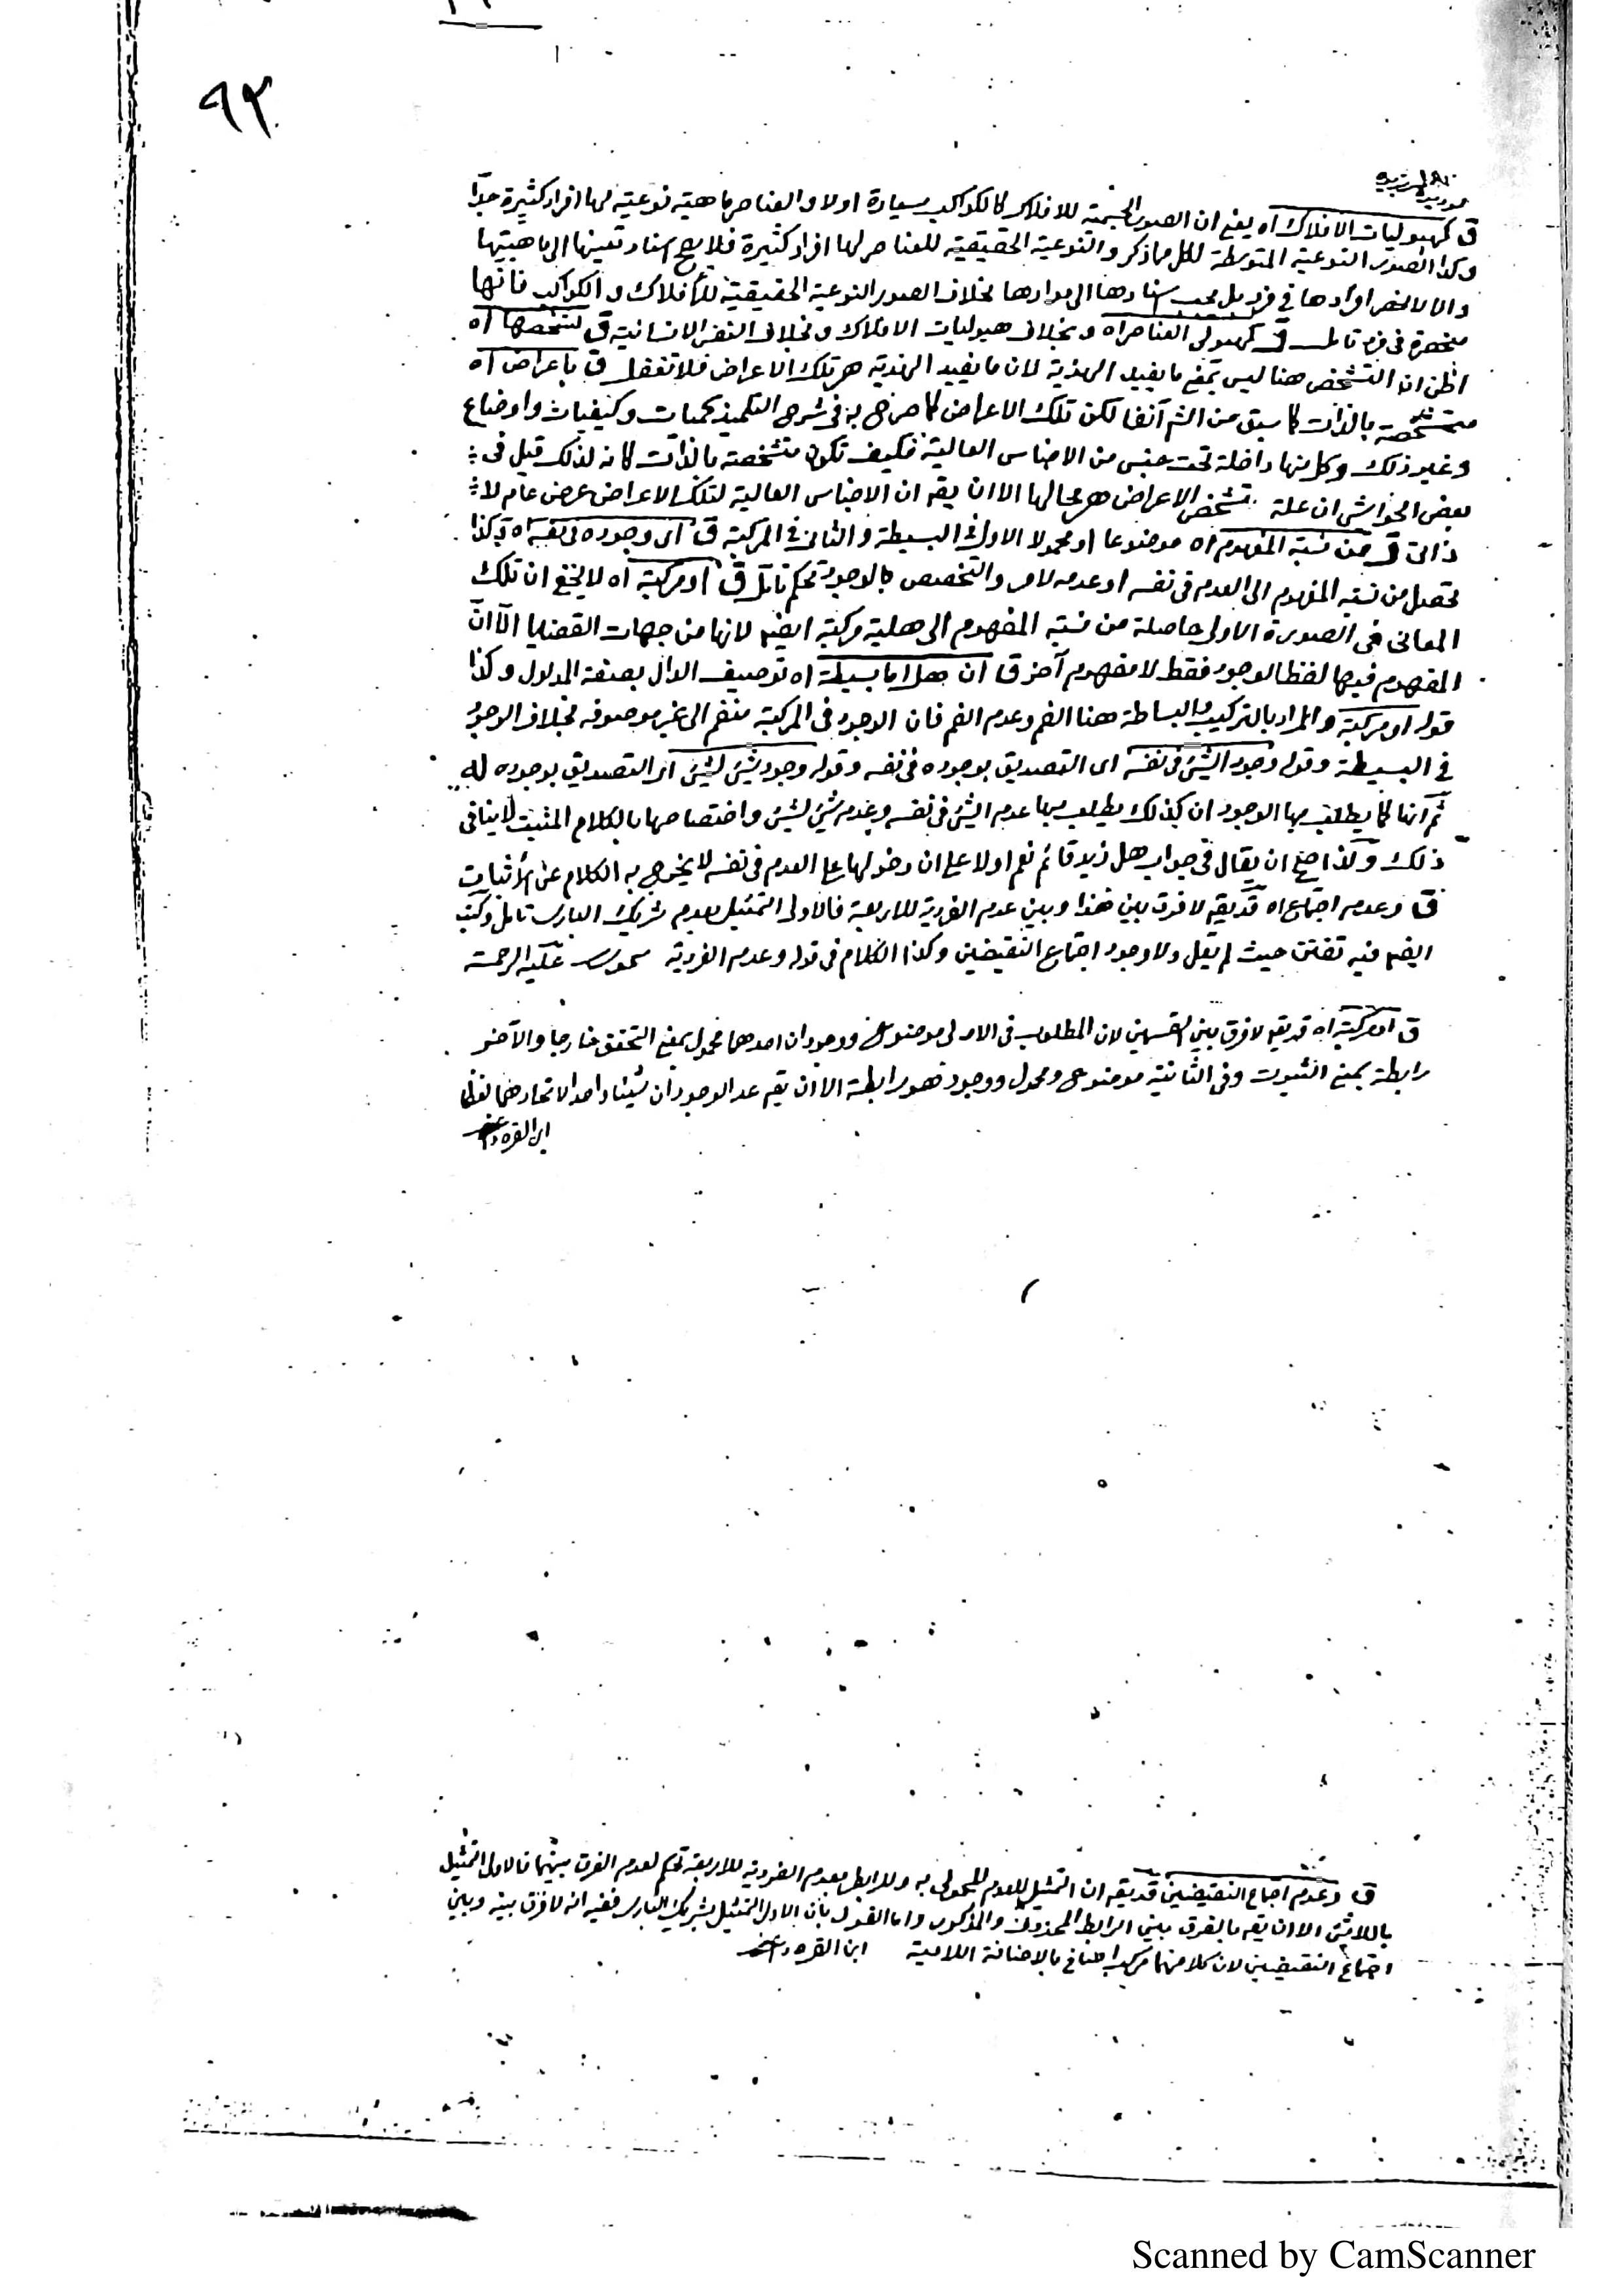 ٩٣
ق كهيوليات الافلاك اه يعنى ان الصور الجسمية للافلاك كالكواكب سيارة اولا والعناصر ماهية نوعية لها افراد كثيرة جدا
وكذا الصور النوعية المتوسطة لكل مما ذكر والنوعية الحقيقية للعناصر لها افراد كثيرة فلا يصح اسناد تعينها الى ماهيتها
والا لانحصر افرادها في فرد بل يجب اسنادها الى موادها بخلاف الصور النوعية الحقيقية للافلاك والكواكب فانها
منحصرة في فرد تامل ق كهيولى العناصر اه وبخلاف هيوليات الافلاك وبخلاف النفس الانسانية ق لتشخصها اه
اظن ان التشخص هنا ليس بمعنى ما يفيد الهذية لان ما يفيد الهذية هو تلك الاعراض فلا تغفل ق باعراض اه
متشخصة بالذات كما سبق من الش آنفا لكن تلك الاعراض كما صرح به في شرح التلميذ كميات وكيفيات واوضاع
وغير ذلك وكل منها داخلة تحت جنس من الاجناس العالية فكيف تكون متشخصة بالذات كانه لذلك قيل في
بعض الحواشي ان علة تشخص الاعراض هو محالها الا ان يقم ان الاجناس العالية لتلك الاعراض عرض عام لا
ذاتى ق من نسبة المفهوم اه موضوعا او محمولا الاول في البسيطة والثاني في المركبة ق اى وجوده في نفسه اه وكذا
تحصل من نسبة المفهوم الى العدم في نفسه او عدمه لامر والتخصيص بالوجود تحكم تامل ق او مركبة اه لا يخفى ان تلك
المعانى في الصورة الاولى حاصلة من نسبة المفهوم الى هلية مركبة ايضم لانها من جهات القضايا الا ان
المفهوم فيها لفظ الوجود فقط لا مفهوم آخر ق ان هل اما بسيطة اه توصيف الدال بصفة المدلول وكذا
قوله او مركبة والمراد بالتركيب والبساطة هنا الضم وعدم الضم فان الوجود في المركبة منضم الى غير موصوفه بخلاف الوجود
في البسيطة وقوله وجود الشئ في نفسه اى التصديق بوجوده في نفسه وقوله وجود شئ لشئ اى التصديق بوجوده له
ثم انها كما يطلب بها الوجود ان كذلك يطلب بها عدم الشئ في نفسه وعدم شئ لشئ واختصاصها بالكلام المثبت لا ينافى
ذلك ولذا صح ان يقال في جواب هل زيد قائم نعم او لا على ان دخولها على العدم في نفسه لا يخرج به الكلام عن الاثبات
ق وعدم اجتماع اه قد يقم لا فرق بين هذا وبين عدم الفردية للاربعة فالاولى التمثيل بعدم شريك البارى تامل وكتب
ايضم فيه تفنن حيث لم يقل ولا وجود اجتماع النقيضين وكذا الكلام في قوله وعدم الفردية عليه الرحمة
ق او مركبة اه قد يقم لا فرق بين القسمين لان المطلوب في الاولى موضوع ووجودان احدهما محمول بمعنى التحقق خارجا والآخر
رابطة بمعنى الثبوت وفي الثانية موضوع ومحمول ووجود فهو رابطة الا ان يقم عد الوجودان شيئا واحدا لاتحادهما لفظا
ابن القره داغى
ق وعدم اجتماع النقيضين قد يقم ان التمثيل للعدم المحمولى به وللرابطى بعدم الفردية للاربعة تحكم لعدم الفرق بينهما فالاولى التمثيل
باللاشئ الا ان يقم بالفرق بين الرابط المحذوف والمذكور واما القول بان الاولى التمثيل بشريك البارى ففيه انه لا فرق بينه وبين
اجتماع النقيضين لان كلا منهما مركب اضافي بالاضافة اللامية ابن القره داغى
Scanned by CamScanner